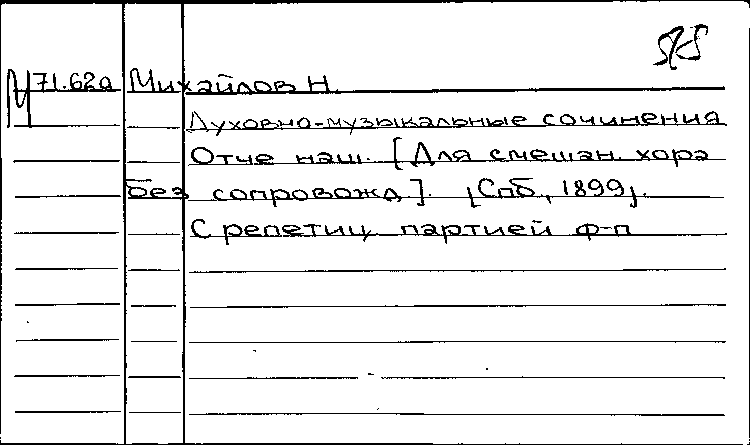 М 71.62а Михайлов Н.
Духовно-музыкальные сочинения
Отче наш. [Для смешан. хора
без сопровожд.]. [Спб, 1899].
С репетиц. партией ф-п